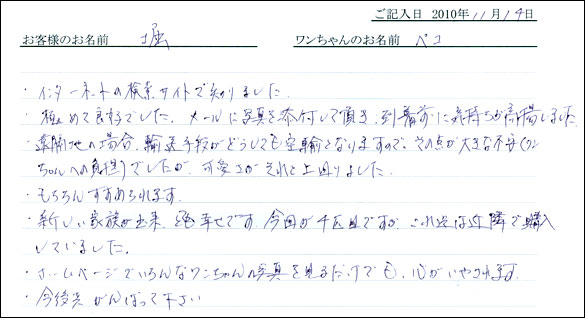 ご記入日 2010年11月14日
お客様のお名前 堀 ワンちゃんのお名前 ペコ
・インターネットの検索サイトで知りました。
・極めて良好でした。メールに写真を添付して頂き、到着前に気持ちが高揚しました。
・遠隔地の場合、輸送手段がどうしても空輸となりますので、その点が大きな不安(ワン
ちゃんへの負担)でしたが、可愛さがそれを上回りました。
・もちろんすすめられます。
・新しい家族が出来、幸せです。今回が4匹目ですが、これ迄は近隣で購入
していました。
・ホームページでいろんなワンちゃんの写真を見るだけでも、心がいやされます。
・今後共がんばって下さい